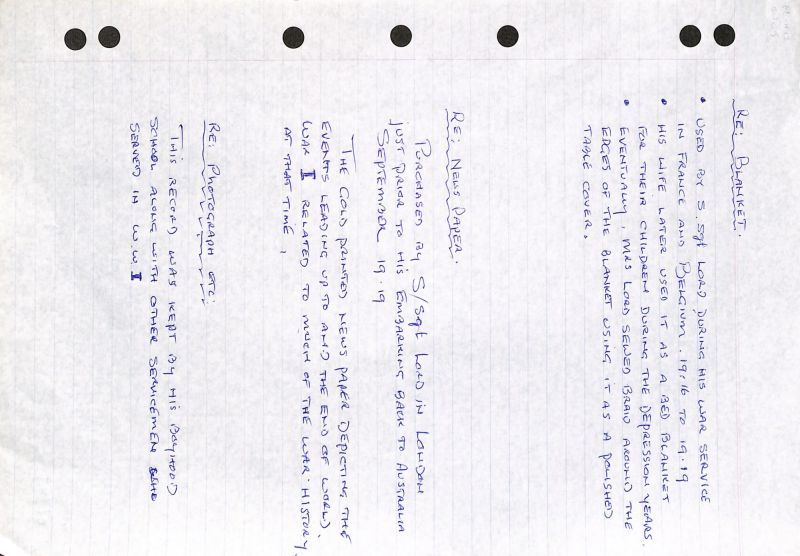 RE: BLANKET.
• USED BY S. Sgt LORD DURING HIS WAR SERVICE
IN FRANCE AND BELGIUM. 19.16 TO 19.19
• HIS WIFE LATER USED IT AS A BED BLANKET
FOR THEIR CHILDREN DURING THE DEPRESSION YEARS.
• EVENTUALLY, MRS LORD SEWED BRAID AROUND THE
EDGES OF THE BLANKET USING IT AS A POLISHED
TABLE COVER.
RE: NEWS PAPER.
PURCHASED BY S/Sgt LORD IN LONDON
JUST PRIOR TO HIS EMBARKING BACK TO AUSTRALIA
SEPTEMBER 19.19
THE GOLD PRINTED NEWS PAPER DEPICTING THE
EVENTS LEADING UP TO AND THE END OF WORLD.
WAR I RELATED TO MUCH OF THE WAR HISTORY.
AT THAT TIME.
RE: PHOTOGRAPH ETC:
THIS RECORD WAS KEPT BY HIS BOYHOOD
SCHOOL ALONG WITH OTHER SERVICEMEN WHO
SERVED IN W.W I